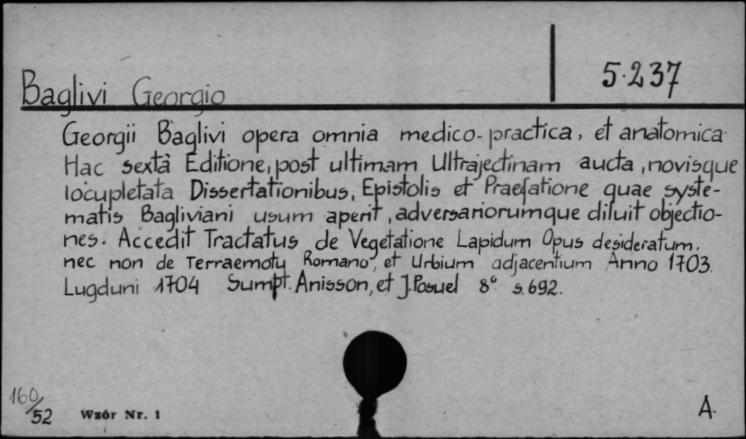 5.237
Baglivi Georgio
Georgii Baglivi opera omnia medico-practica, et anatomica.
Hac sextâ Editione, post ultimam Ultrajectinam aucta, novisque
locupletata Dissertationibus, Epistolis et Praefatione quae syste-
matis Bagliviani usum aperit, adversariorumque diluit objectio-
nes. Accedit Tractatus de Vegetatione Lapidum Opus desideratum,
nec non de Terraemotu Romano, et Urbium adjacentium Anno 1703.
Lugduni 1704 Sumpt. Anisson, et J. Posuel 8° s. 692.
160/52 Wzór Nr. 1 A.